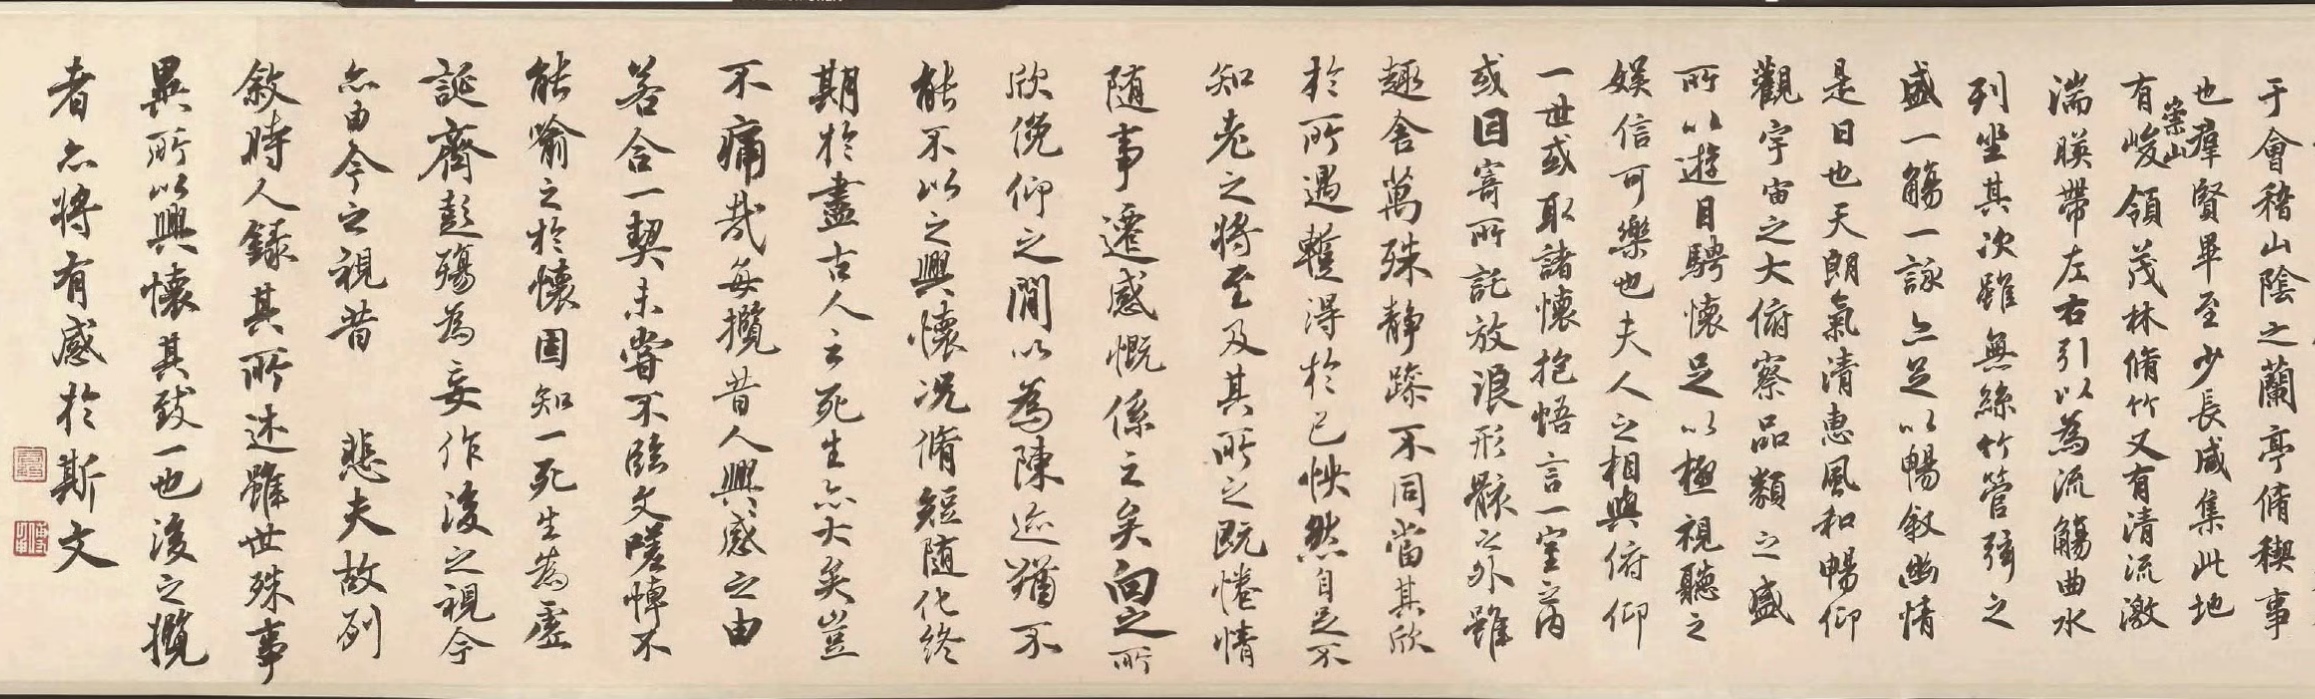 于會稽山陰之蘭亭脩稧事
也羣賢畢至少長咸集此地
有崇山峻領茂林脩竹又有清流激
湍暎帶左右引以為流觴曲水
列坐其次雖無絲竹管弦之
盛一觴一詠亦足以暢敘幽情
是日也天朗氣清惠風和暢仰
觀宇宙之大俯察品類之盛
所以遊目騁懷足以極視聽之
娛信可樂也夫人之相與俯仰
一世或取諸懷抱悟言一室之內
或因寄所託放浪形骸之外雖
趣舍萬殊靜躁不同當其欣
於所遇蹔得於己怏然自足不
知老之將至及其所之既惓情
隨事遷感慨係之矣向之所
欣俛仰之間以為陳迹猶不
能不以之興懷況脩短隨化終
期於盡古人云死生亦大矣豈
不痛哉每攬昔人興感之由
若合一契未嘗不臨文嗟悼不
能喻之於懷固知一死生為虛
誕齊彭殤為妄作後之視今
亦由今之視昔 悲夫故列
敘時人錄其所述雖世殊事
異所以興懷其致一也後之攬
者亦將有感於斯文